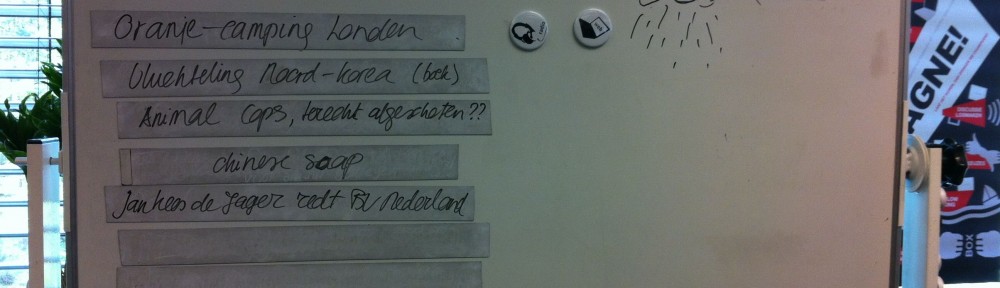 Oranje-camping Londen
Vluchteling Noord-Korea (boek)
Animal Cops, terecht afgeschoten??
chinese soap
Jan Kees de Jager redt BV Nederland
GNE!